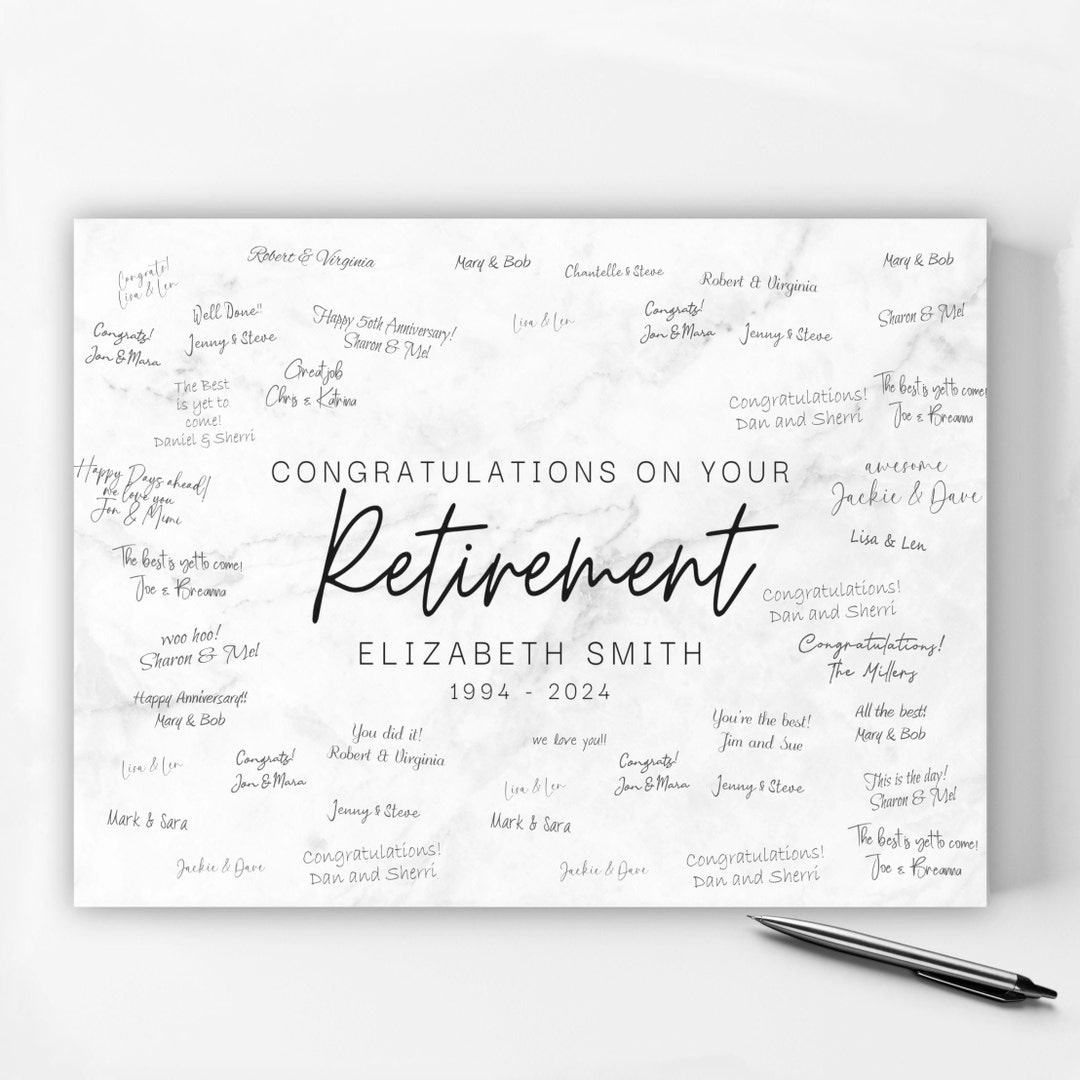 Congrats!
Lisa & Len
Robert & Virginia
Mary & Bob
Chantelle & Steve
Robert & Virginia
Mary & Bob
Congrats!
Jon & Mara
Well Done!!
Jenny & Steve
Happy 50th Anniversary!
Sharon & Mel
Lisa & Len
Congrats!
Jon & Mara
Jenny & Steve
Sharon & Mel
The Best
is yet to
come!
Daniel & Sherri
Great job
Chris & Katrina
Congratulations!
Dan and Sherri
The best is yet to come!
Joe & Breanna
Happy Days ahead!
we love you
Jon & Mimi
CONGRATULATIONS ON YOUR
Retirement
ELIZABETH SMITH
1994 - 2024
awesome
Jackie & Dave
Lisa & Len
The best is yet to come!
Joe & Breanna
Congratulations!
Dan and Sherri
woo hoo!
Sharon & Mel
Congratulations!
The Millers
Happy Anniversary!!
Mary & Bob
You did it!
Robert & Virginia
we love you!!
You're the best!
Jim and Sue
All the best!
Mary & Bob
Lisa & Len
Congrats!
Jon & Mara
Lisa & Len
Congrats!
Jon & Mara
Jenny & Steve
This is the day!
Sharon & Mel
Mark & Sara
Jenny & Steve
Mark & Sara
The best is yet to come!
Joe & Breanna
Jackie & Dave
Congratulations!
Dan and Sherri
Jackie & Dave
Congratulations!
Dan and Sherri